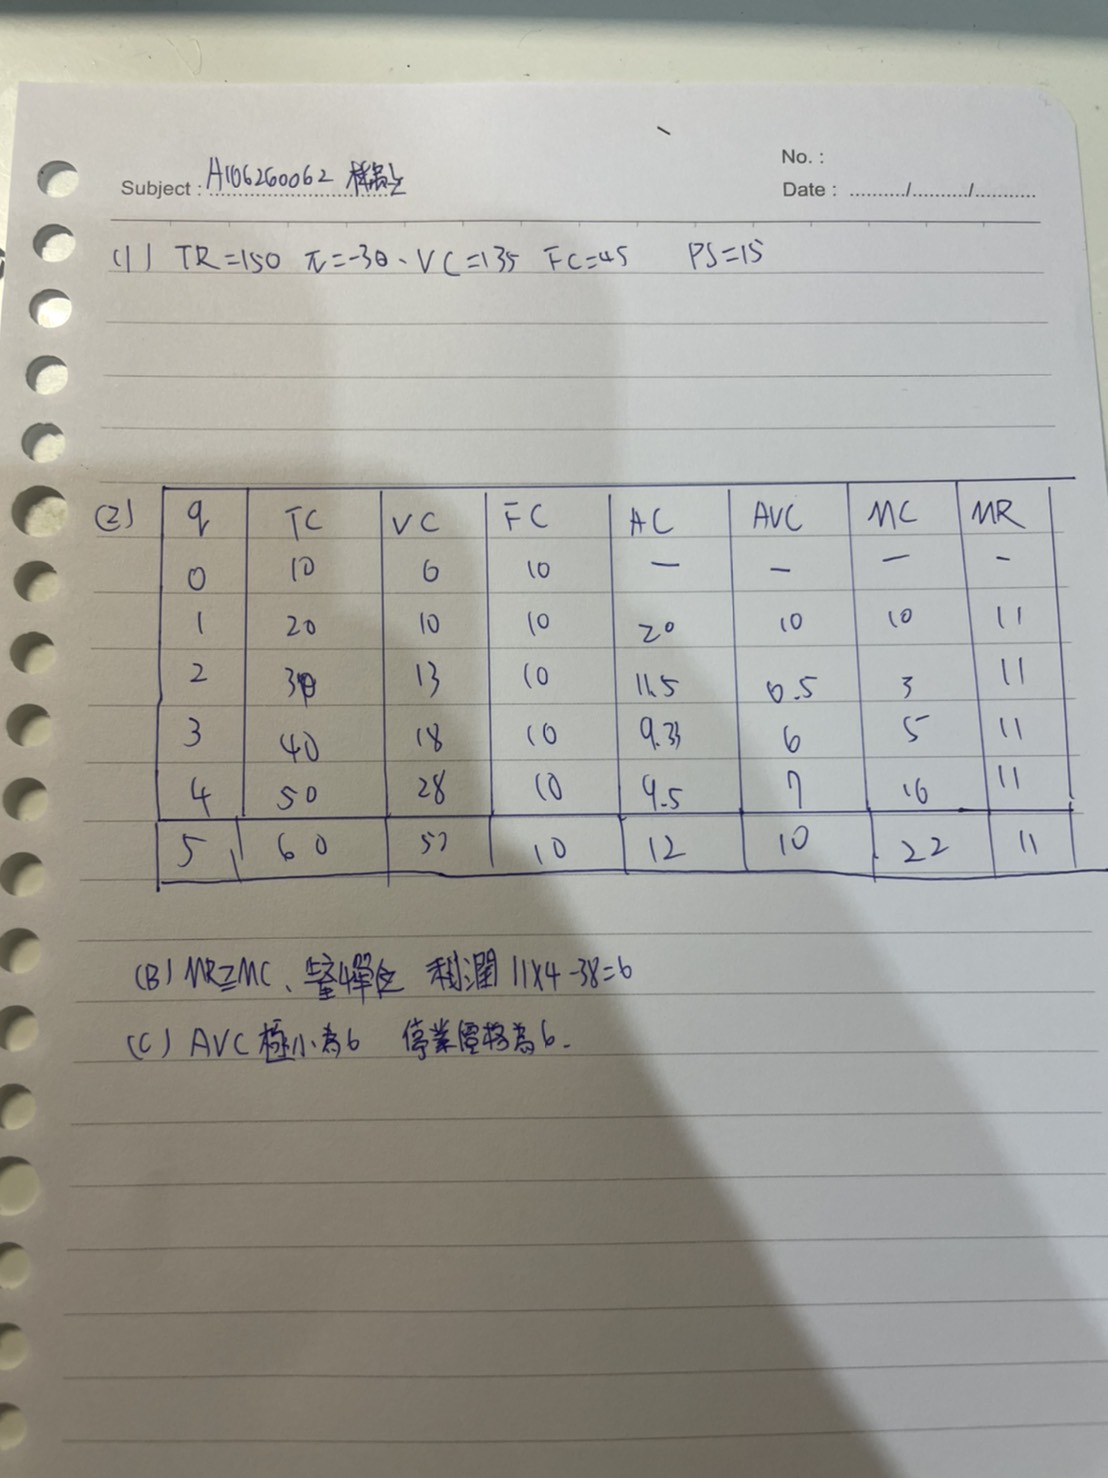 No. :
Subject : A106260062
Date : ........./........./.........
(1) TR=150 π=-30、VC=135 FC=45 PS=15
(2) q TC VC FC AC AVC MC MR
0 10 0 10 — — — -
1 20 10 10 20 10 10 11
2 30 13 10 11.5 6.5 3 11
3 40 18 10 9.33 6 5 11
4 50 28 10 9.5 7 10 11
5 60 50 10 12 10 22 11
(B) MR≥MC、4單位 利潤 11X4-38=6
(C) AVC極小為6 停業價格為6.